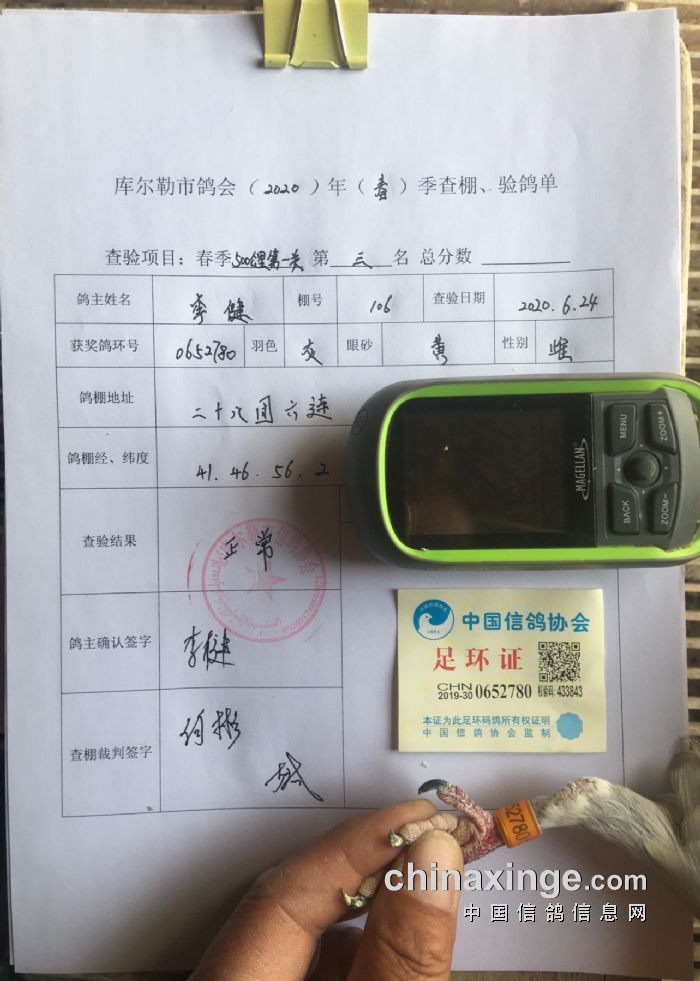 库尔勒市鸽会（2020）年（春）季查棚、验鸽单
查验项目：春季500公里第一关 第 三 名 总分数
鸽主姓名 李健 棚号 106 查验日期 2020.6.24
获奖鸽环号 0652780 羽色 灰 眼砂 黄 性别 雌
鸽棚地址 二十八团六连
鸽棚经、纬度 41.46.56.2
查验结果 正常
鸽主确认签字 李健
查棚裁判签字 何彬
MAGELLAN
MENU
ZOOM+
BACK
ZOOM-
中国信鸽协会
足环证
CHN
2019-30 0652780 校验码:433843
本证为此足环码鸽所有权证明
中国信鸽协会监制
52780
chinaxinge.com
中国信鸽信息网